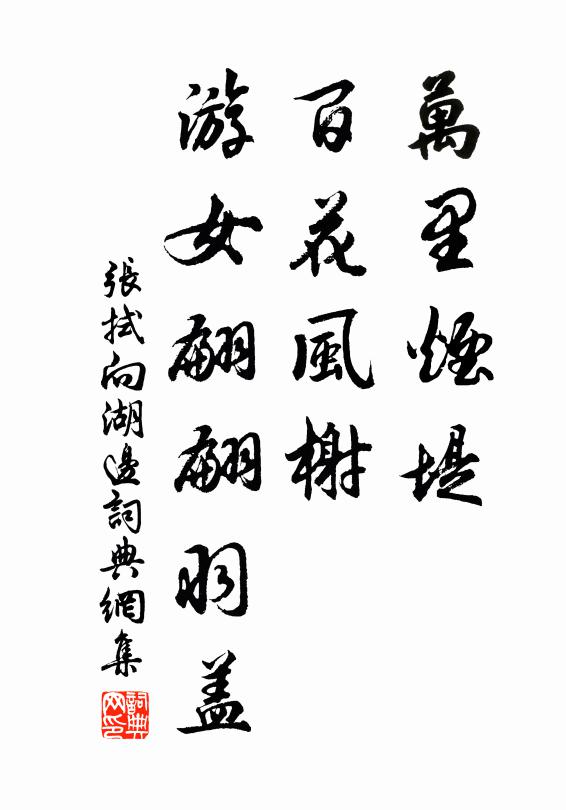 萬里煙堤
百花風榭
游女翩翩羽盖
張拭向湖邊詞典網集
詞典
网印